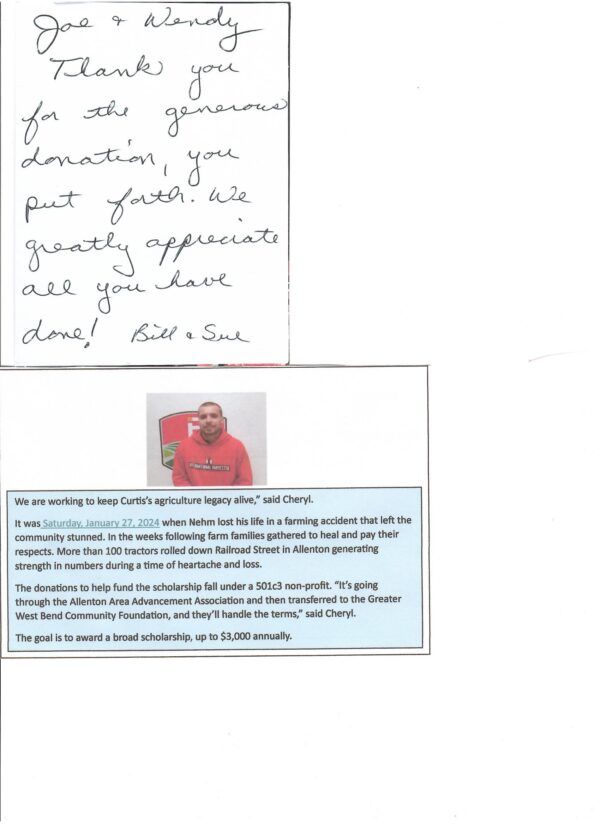 Joe & Wendy
Thank you
for the generous
donation, you
put forth. We
greatly appreciate
all you have
done! Bill & Sue
We are working to keep Curtis's agriculture legacy alive," said Cheryl.
It was Saturday, January 27, 2024 when Nehm lost his life in a farming accident that left the
community stunned. In the weeks following farm families gathered to heal and pay their
respects. More than 100 tractors rolled down Railroad Street in Allenton generating
strength in numbers during a time of heartache and loss.
The donations to help fund the scholarship fall under a 501c3 non-profit. "It's going
through the Allenton Area Advancement Association and then transferred to the Greater
West Bend Community Foundation, and they'll handle the terms," said Cheryl.
The goal is to award a broad scholarship, up to $3,000 annually.